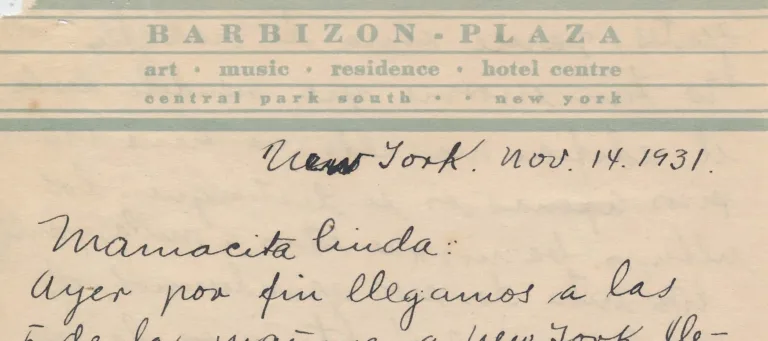 BARBIZON-PLAZA
art • music • residence • hotel centre
central park south • • new york
New York. Nov. 14. 1931.
Mamacita linda:
Ayer por fin llegamos a las
de la a New York